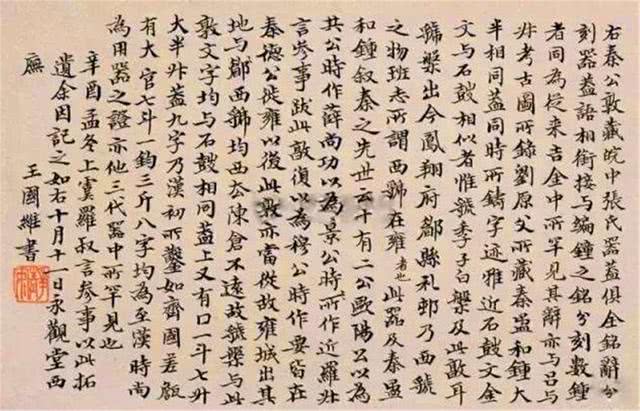 右秦公敦藏皖中張氏器蓋俱全銘辭分
刻器蓋語相銜接與編鐘之銘分刻數鐘
者同為從来吉金中所罕見其辭亦与吕与
叔考古圖所錄劉原父所藏秦盄和鐘大
半相同蓋同時所鑄字迹雅近石鼓文金
文与石鼓相似者惟虢季子白槃及此敦耳
虢槃出今鳳翔府郿縣礼邨乃西虢
之物班志所謂西虢在雍者也此器及秦盄
和鐘叙秦之先世云十有二公歐陽公以為
共公時作薛尚功以為景公時所作近羅叔
言參事跋此敦復以為穆公時作要皆在
秦德公徙雍以後此敦亦當從故雍城出其
地与郿西虢均西去陳倉不遠故虢槃与此
敦文字均与石鼓相同蓋上又有口一斗七升
大半升蓋九字乃漢初所鑿如齊國差
有大官七斗一鈞三斤八字均為至漢時尚
為用器之證亦他三代器中所罕見也
辛酉孟冬上虞羅叔言參事以此拓
遺余因記之如右十月十一日永觀堂西
廡 王國維書